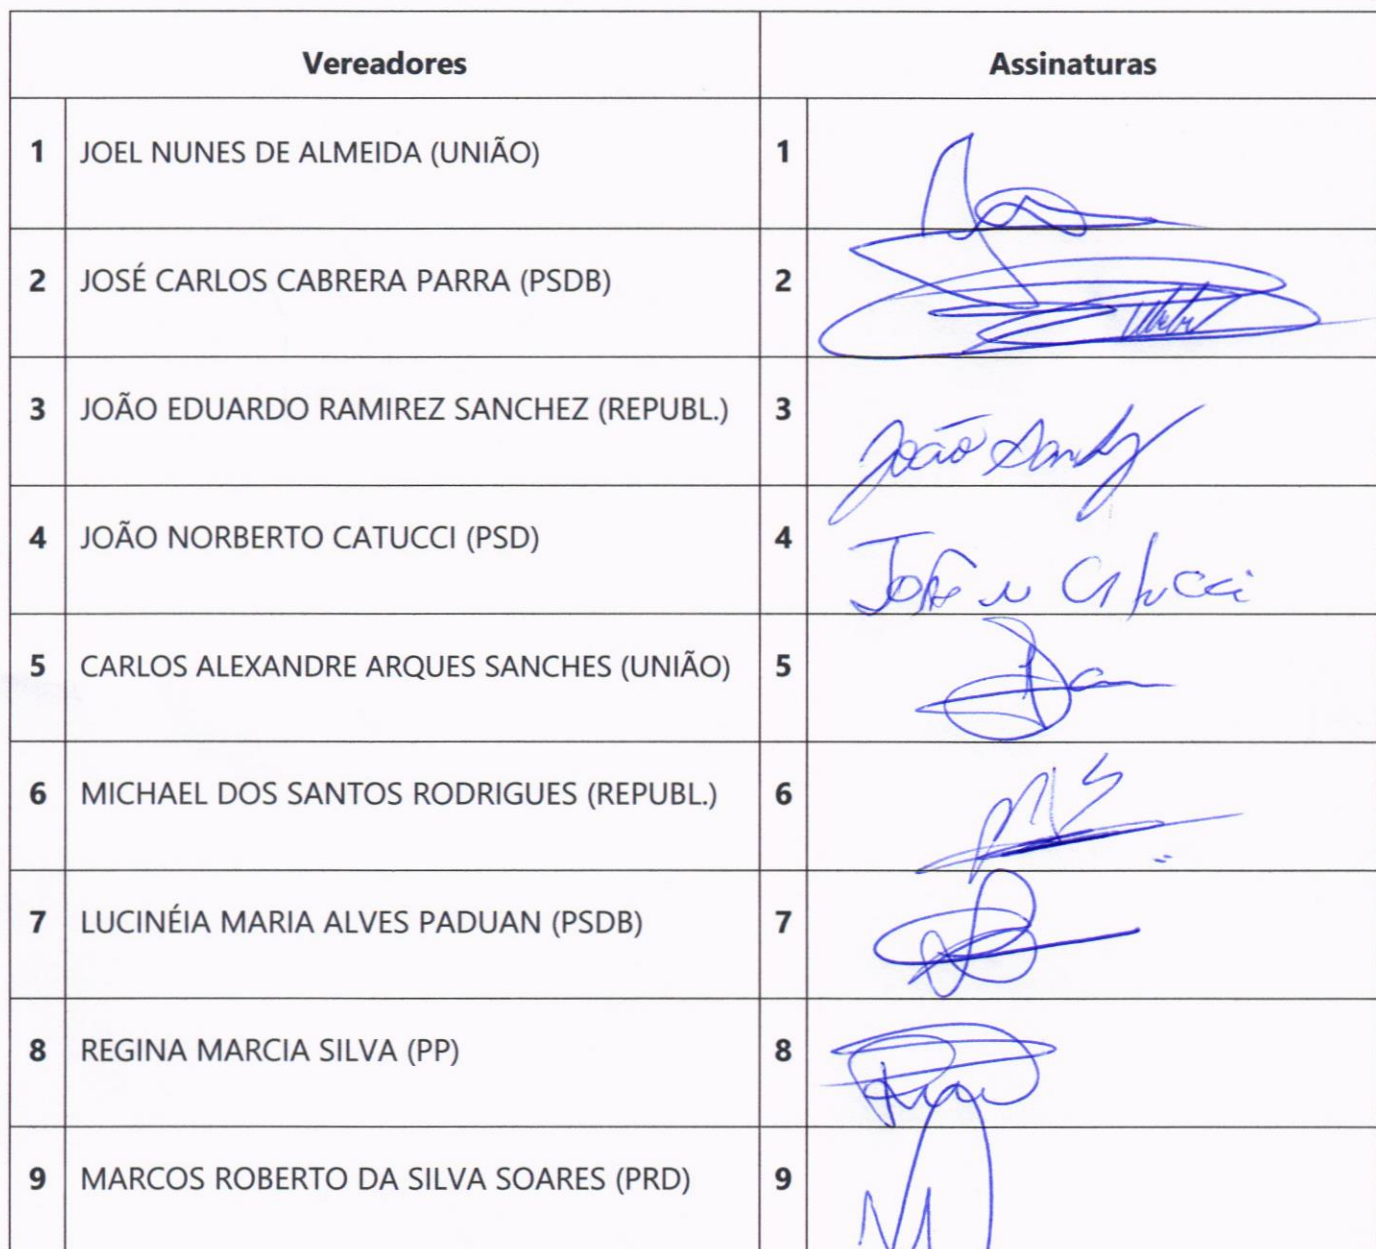 Vereadores Assinaturas
1 JOEL NUNES DE ALMEIDA (UNIÃO) 1
2 JOSÉ CARLOS CABRERA PARRA (PSDB) 2
3 JOÃO EDUARDO RAMIREZ SANCHEZ (REPUBL.) 3 João
4 JOÃO NORBERTO CATUCCI (PSD) 4 João N Catucci
5 CARLOS ALEXANDRE ARQUES SANCHES (UNIÃO) 5
6 MICHAEL DOS SANTOS RODRIGUES (REPUBL.) 6
7 LUCINÉIA MARIA ALVES PADUAN (PSDB) 7
8 REGINA MARCIA SILVA (PP) 8
9 MARCOS ROBERTO DA SILVA SOARES (PRD) 9